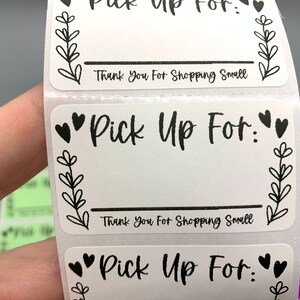 Pick Up For:
Thank You For Shopping Small
Pick Up For:
Thank You For Shopping Small
Pick Up For: